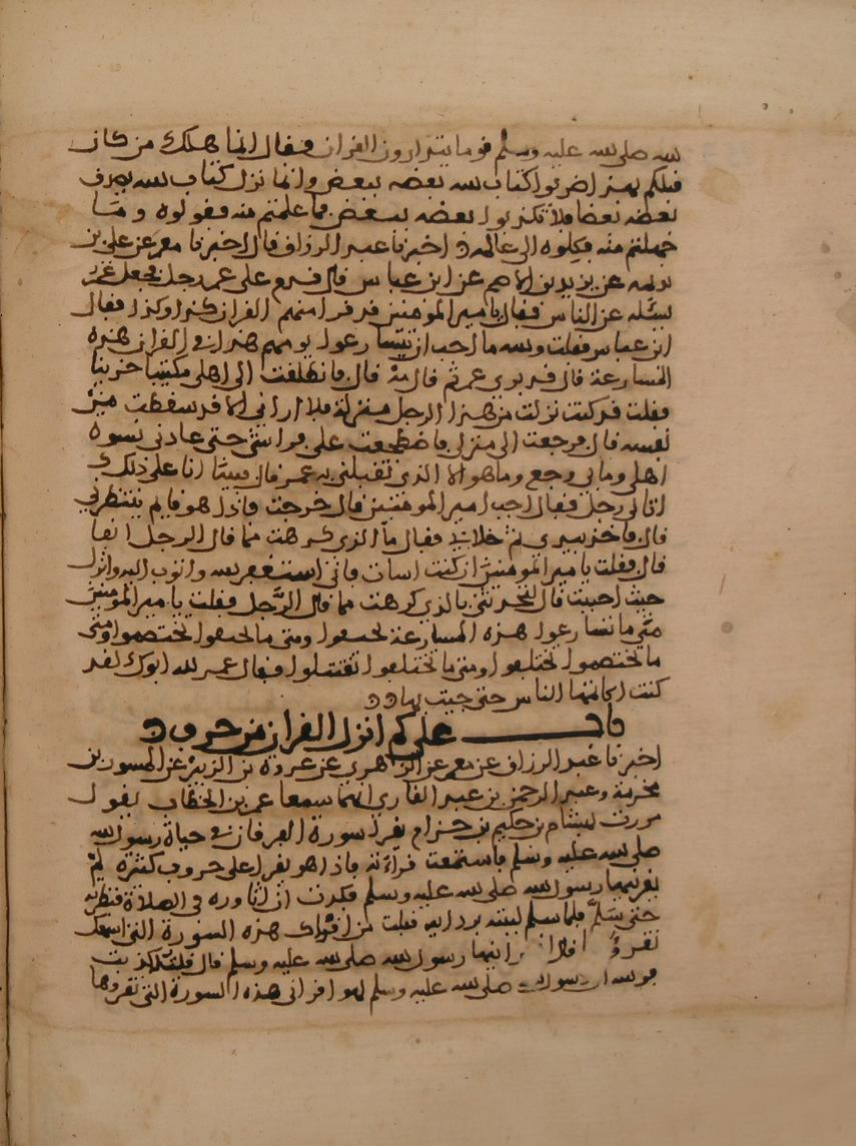 الله صلى الله عليه وسلم قوما يتدارون القران فقال انما هلك من كان
قبلكم بهذا ضربوا كتاب الله بعضه ببعض وانما نزل كتاب الله يصدق
بعضه بعضا فلا تكذبوا بعضه ببعض فما علمتم منه فقولوه وما
جهلتم منه فكلوه الى عالمه اخبرنا عبد الرزاق قال اخبرنا معمر عن علي بن
بذيمة عن يزيد بن الاصم عن ابن عباس قال قدم على عمر رجل فجعل عمر
يسئله عن الناس فقال يا امير المومنين قد قرا منهم القران كذا وكذا فقال
ابن عباس فقلت والله ما احب ان يتسارعوا يومهم هذا في القران هذه
المسارعة قال فزبرني عمر ثم قال مه قال فانطلقت الى اهلي مكتئبا حزينا
فقلت قد كنت نزلت من هذا الرجل منزلة فلا اراني الا قد سقطت من
نفسه قال فرجعت الى منزلي فاضطجعت على فراشي حتى عادني نسوة
اهلي وما بي وجع وما هو الا الذي تقبلني به عمر قال فبينا انا على ذلك
اتاني رجل فقال اجب امير المومنين قال خرجت فاذا هو قائم ينتظرني
قال فاخذ بيدي ثم خلا بي فقال ما الذي كرهت مما قال الرجل انفا
قال فقلت يا امير المومنين ان كنت اسات فاني استغفر الله واتوب اليه وانزل
حيث احببت قال لتخبرني بالذي كرهت مما قال الرجل فقلت يا امير المومنين
متى ما تسارعوا هذه المسارعة يحتقوا ومتى ما يحتقوا يختصموا ومتى
ما يختصموا يختلفوا ومتى ما يختلفوا يقتتلوا فقال عمر لله ابوك لقد
كنت اكاتمها الناس حتى جيت بها
باب على كم انزل القران من حرف
اخبرنا عبد الرزاق عن معمر عن الزهري عن عروة بن الزبير عن المسور بن
مخرمة وعبد الرحمن بن عبد القاري انهما سمعا عمر بن الخطاب يقول
مررت بهشام بن حكيم بن حزام يقرا سورة الفرقان في حياة رسول الله
صلى الله عليه وسلم فاستمعت قراءته فاذا هو يقرا على حروف كثيرة لم
يقرئنيها رسول الله صلى الله عليه وسلم فكدت ان اساوره في الصلاة فنظرته
حتى سلم فلما سلم لببته بردائه فقلت من اقراك هذه السورة التي اسمعك
تقرؤها قال اقرانيها رسول الله صلى الله عليه وسلم قال قلت له كذبت
فوالله ان رسول الله صلى الله عليه وسلم لهو اقراني هذه السورة التي تقروها